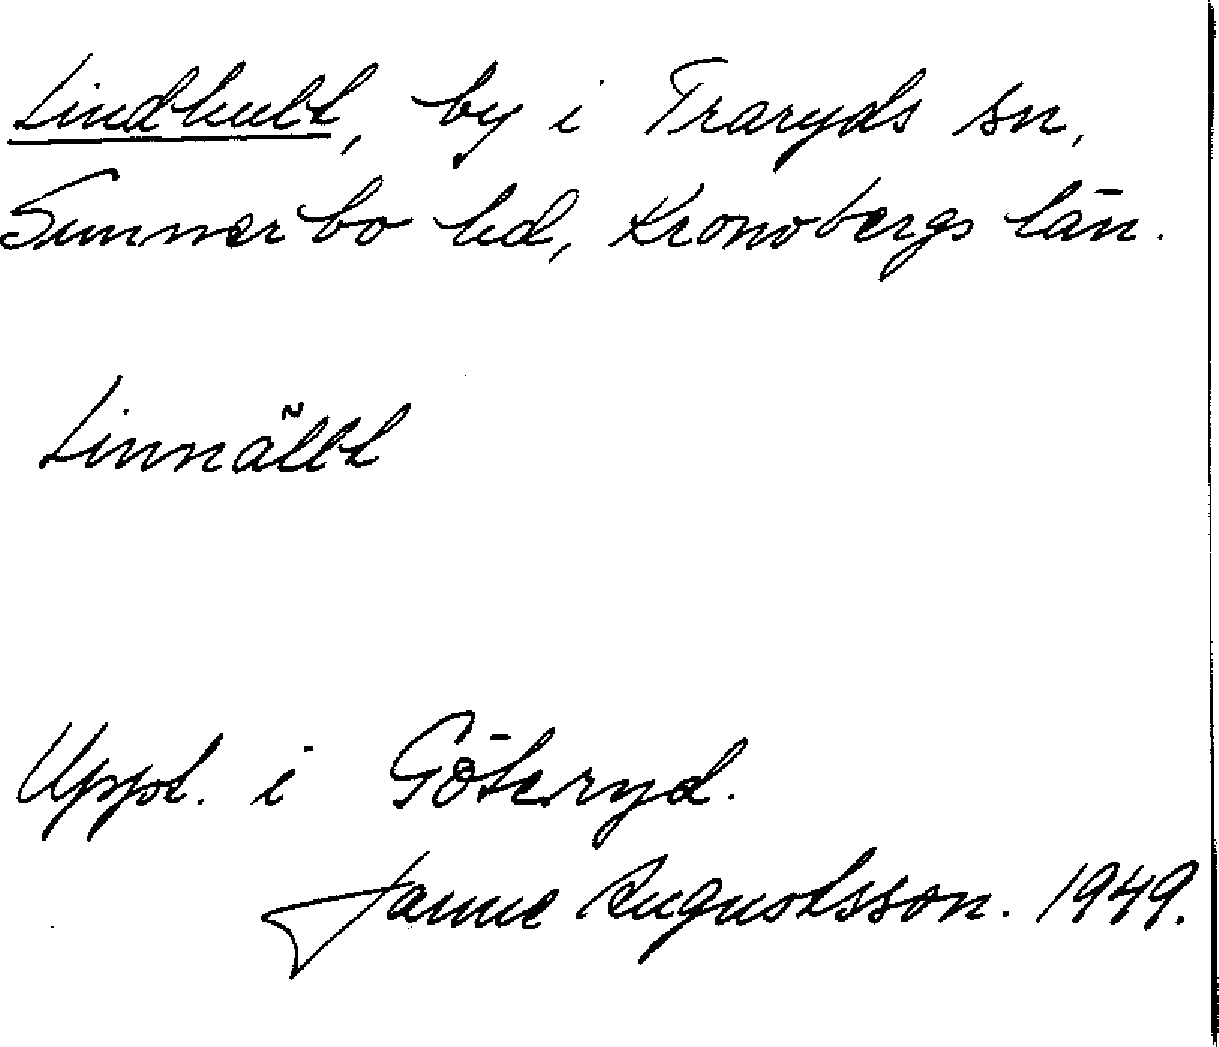 Lindhult, by i Traryds sn,
Sunnerbo hd, Kronobergs län.
Linnällt
Uppt. i Göteryd.
Janne Augustsson. 1949.